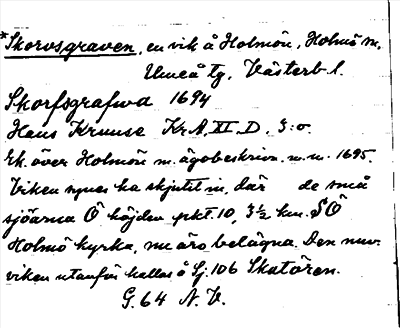 *Skorvsgraven, en vik å Holmön, Holmö sn.
Umeå tg, Västerb. l.
Skorfsgrafwd 1694
Hans Kruuse Kr. A. XI. D. 3:0.
Ek. över Holmön m. ägobeskrivn. 1695.
Viken synes ha skjutit in, där de små
sjöarna Ö höjden pkt. 10, 3½ km. SÖ
Holmö kyrka, nu äro belägna. Den nuv.
viken utanför kallas å Sj. 106 Skatören.
G. 64 N. V.